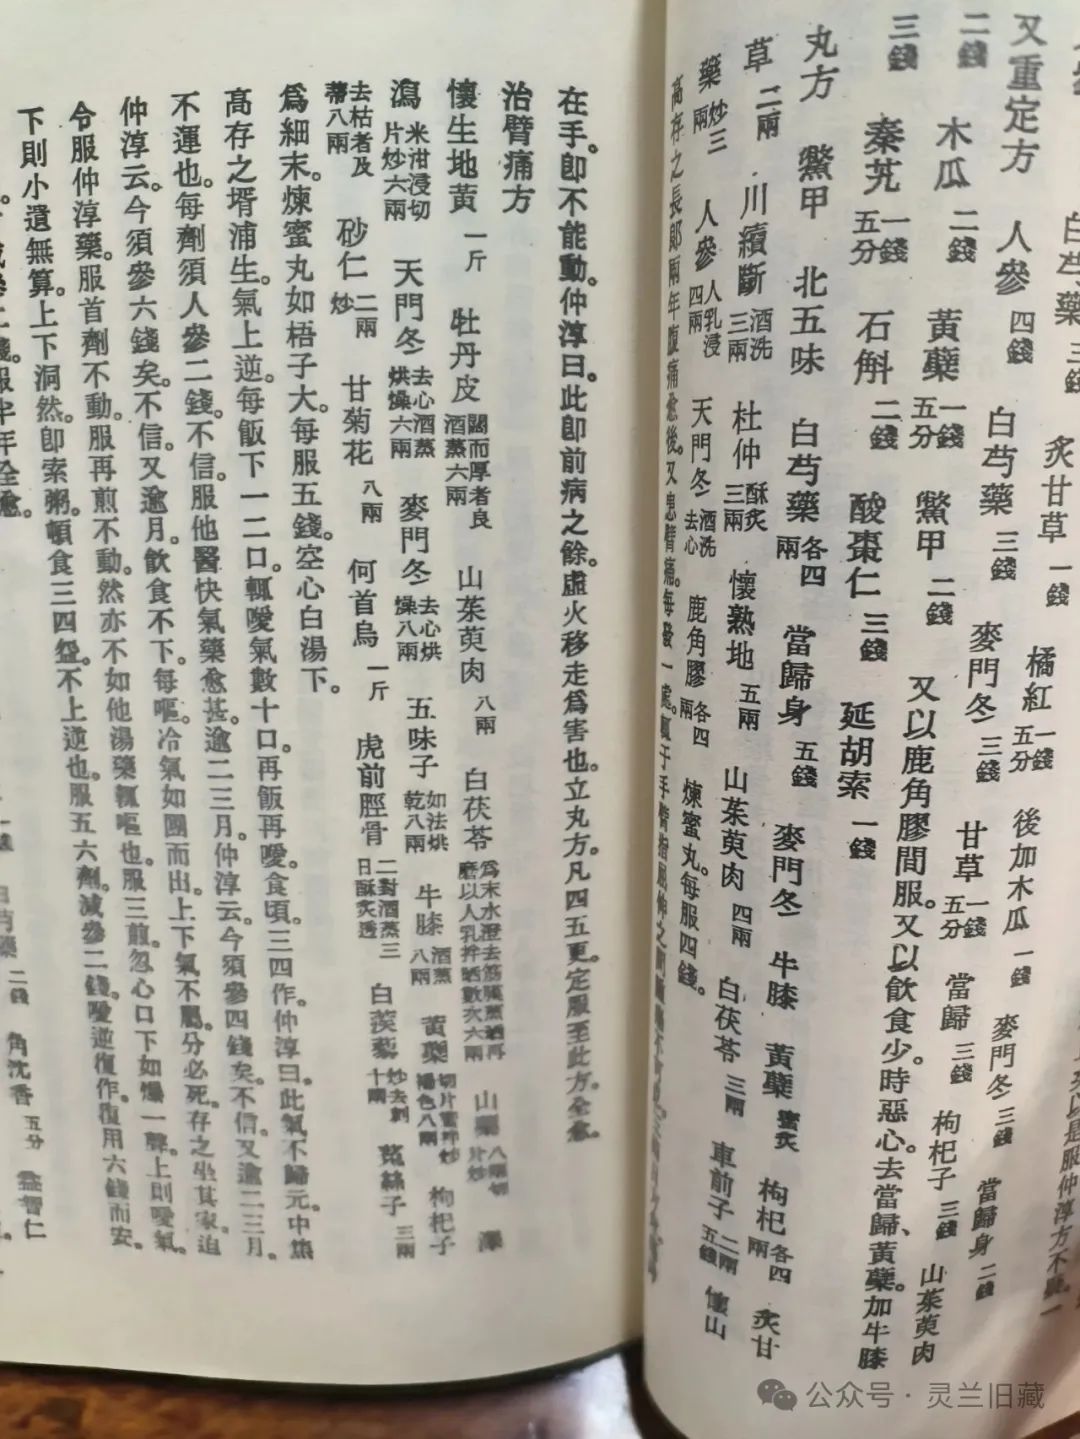 又重定方　人參 四錢　白芍藥 三錢　麥門冬 三錢　甘草 一錢五分　當歸 三錢　枸杞子 三錢　山茱萸肉
二錢　木瓜 二錢　黃蘗 一錢五分　鱉甲 二錢　又以鹿角膠間服。又以飲食少。時惡心。去當歸、黃蘗。加牛膝
三錢　秦艽 一錢五分　石斛 二錢　酸棗仁 三錢　延胡索 一錢
丸方　鱉甲　北五味　白芍藥 各四兩　當歸身 五錢　麥門冬　牛膝　黃蘗 蜜炙　枸杞 各四兩　炙甘
草 二兩　川續斷 酒洗三兩　杜仲 酥炙三兩　懷熟地 五兩　山茱萸肉 四兩　白茯苓 三兩　車前子 二兩五錢　懷山
藥 炒三兩　人參 人乳浸四兩　天門冬 酒洗去心　鹿角膠 各四兩　煉蜜丸。每服四錢。
高存之長郎兩年腹痛愈後。又患臂痛。每發一處。輒于手臂指屈伸之間
在手。卽不能動。仲淳曰。此卽前病之餘。虛火移走爲害也。立丸方。凡四五更。定服至此方。全愈。
治臂痛方
懷生地黃 一斤　牡丹皮 闊而厚者良酒蒸六兩　山茱萸肉 八兩　白茯苓 爲末水澄去筋膜蒸晒再磨以人乳拌晒數次六兩　山藥 八兩切片炒　澤
瀉 米泔浸切片炒六兩　天門冬 去心酒蒸烘燥六兩　麥門冬 去心烘燥八兩　五味子 如法烘乾八兩　牛膝 酒蒸八兩　黃蘗 切片蜜拌炒褐色八兩　枸杞子
去枯者及蒂八兩　砂仁 二兩炒　甘菊花 八兩　何首烏 一斤　虎前脛骨 二對酒蒸三日酥炙透　白蒺藜 炒去刺十兩　菟絲子 三兩
爲細末。煉蜜丸如梧子大。每服五錢。空心白湯下。
高存之壻浦生。氣上逆。每飯下一二口。輒噯氣數十口。再飯再噯。食頃。三四作。仲淳曰。此氣不歸元。中焦
不運也。每劑須人參二錢。不信。服他醫快氣藥愈甚。逾二三月。仲淳云。今須參四錢矣。不信。又逾二三月。
仲淳云。今須參六錢矣。不信。又逾月。飲食不下。每嘔。冷氣如團而出。上下氣不屬。分必死。存之坐其家。迫
令服仲淳藥。服首劑不動。服再煎不動。然亦不如他湯藥輒嘔也。服三煎。忽心口下如爆一聲。上則噯氣。
下則小遺無算。上下洞然。卽索粥。頓食三四盌。不上逆也。服五六劑。減參二錢。噯逆復作。復用六錢而安。
公众号·灵兰旧藏